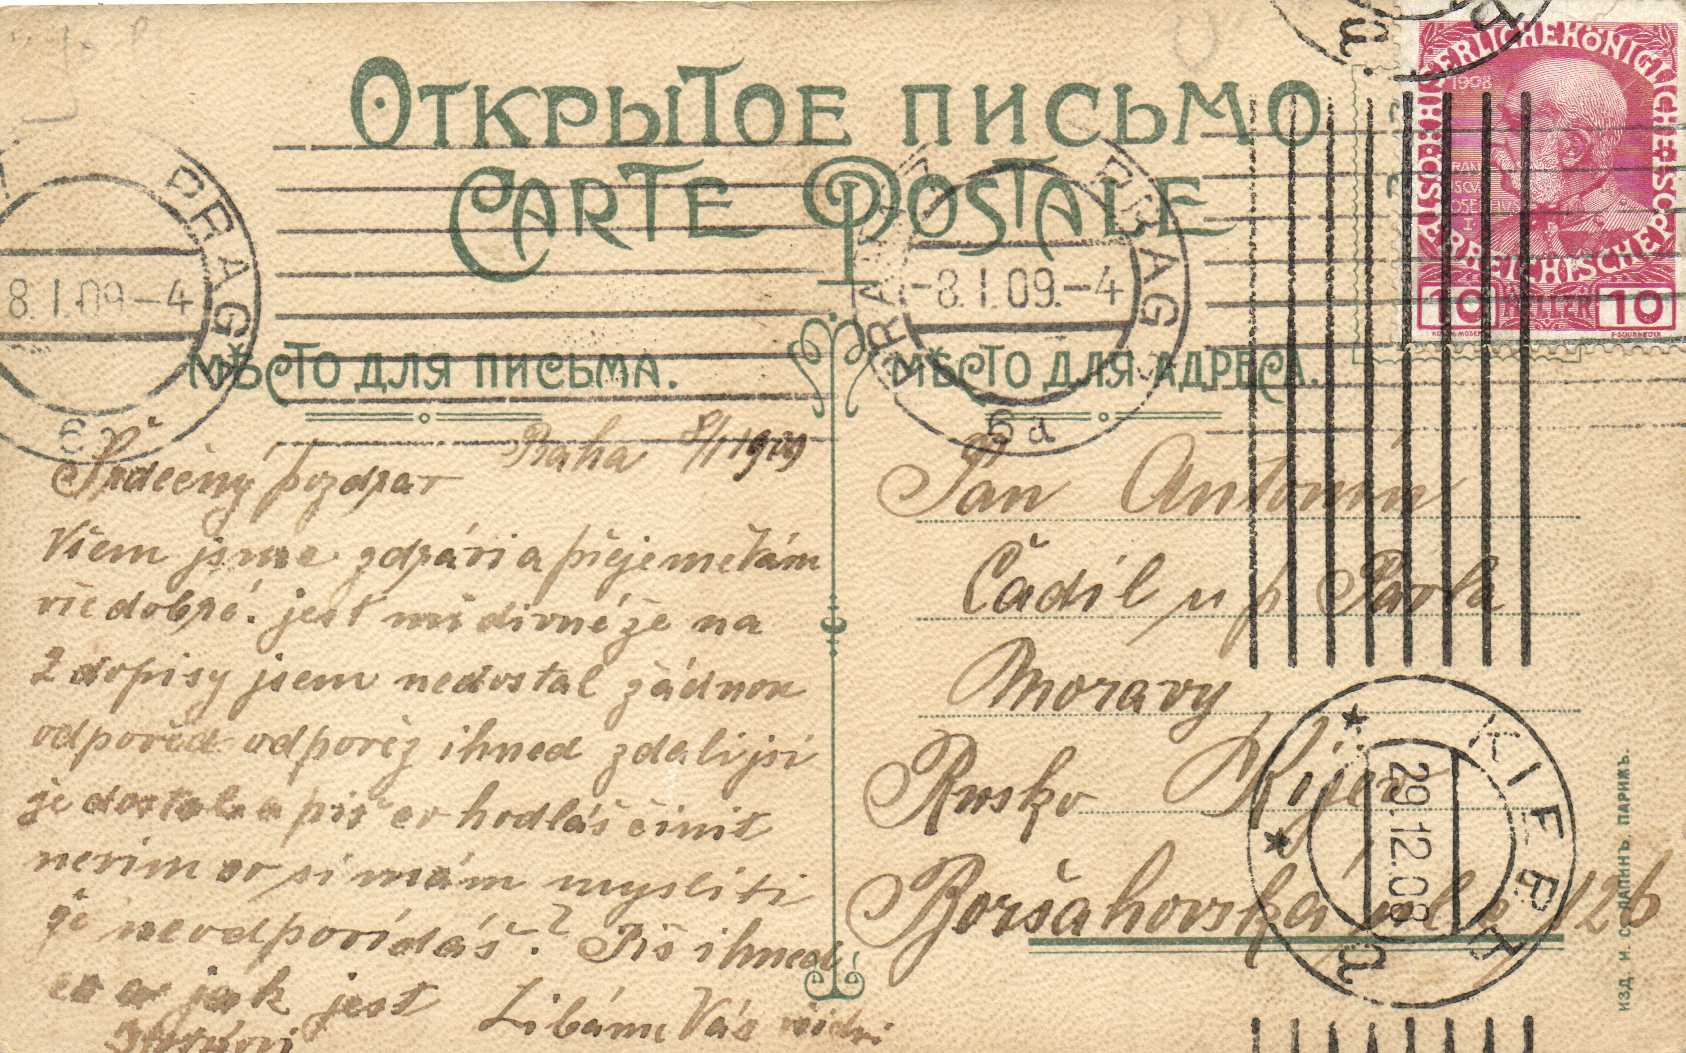 Открытое письмо
Carte Postale
KAISERLICHE KÖNIGLICHE
1908
ÖSTERREICHISCHE POST
10 HELLER 10
PRAG
8.I.09-4
6a
PRAHA PRAG
-8.I.09.-4
6a
Мѣсто для письма.
Мѣсто для адреса.
Praha 8/I 1909
Srdečný pozdrav
Všem jsme zdrávi a přejeme Vám
vše dobré. jest mi divné že na
2 dopisy jsem nedostal žádnou
odpověď odpověz ihned zdali jsi
je dostal a piš co hodláš činit
nevim co si mám mysliti
že neodpovídáš? Piš ihned
co a jak jest
Líbáme Vás
Pan Antonín
Čadíl u p Pavla
Moravy
Rusko Kijev
Boršahovská ul č 126
КІЕВЪ
29.12.08
а
ПАРИЖЪ.